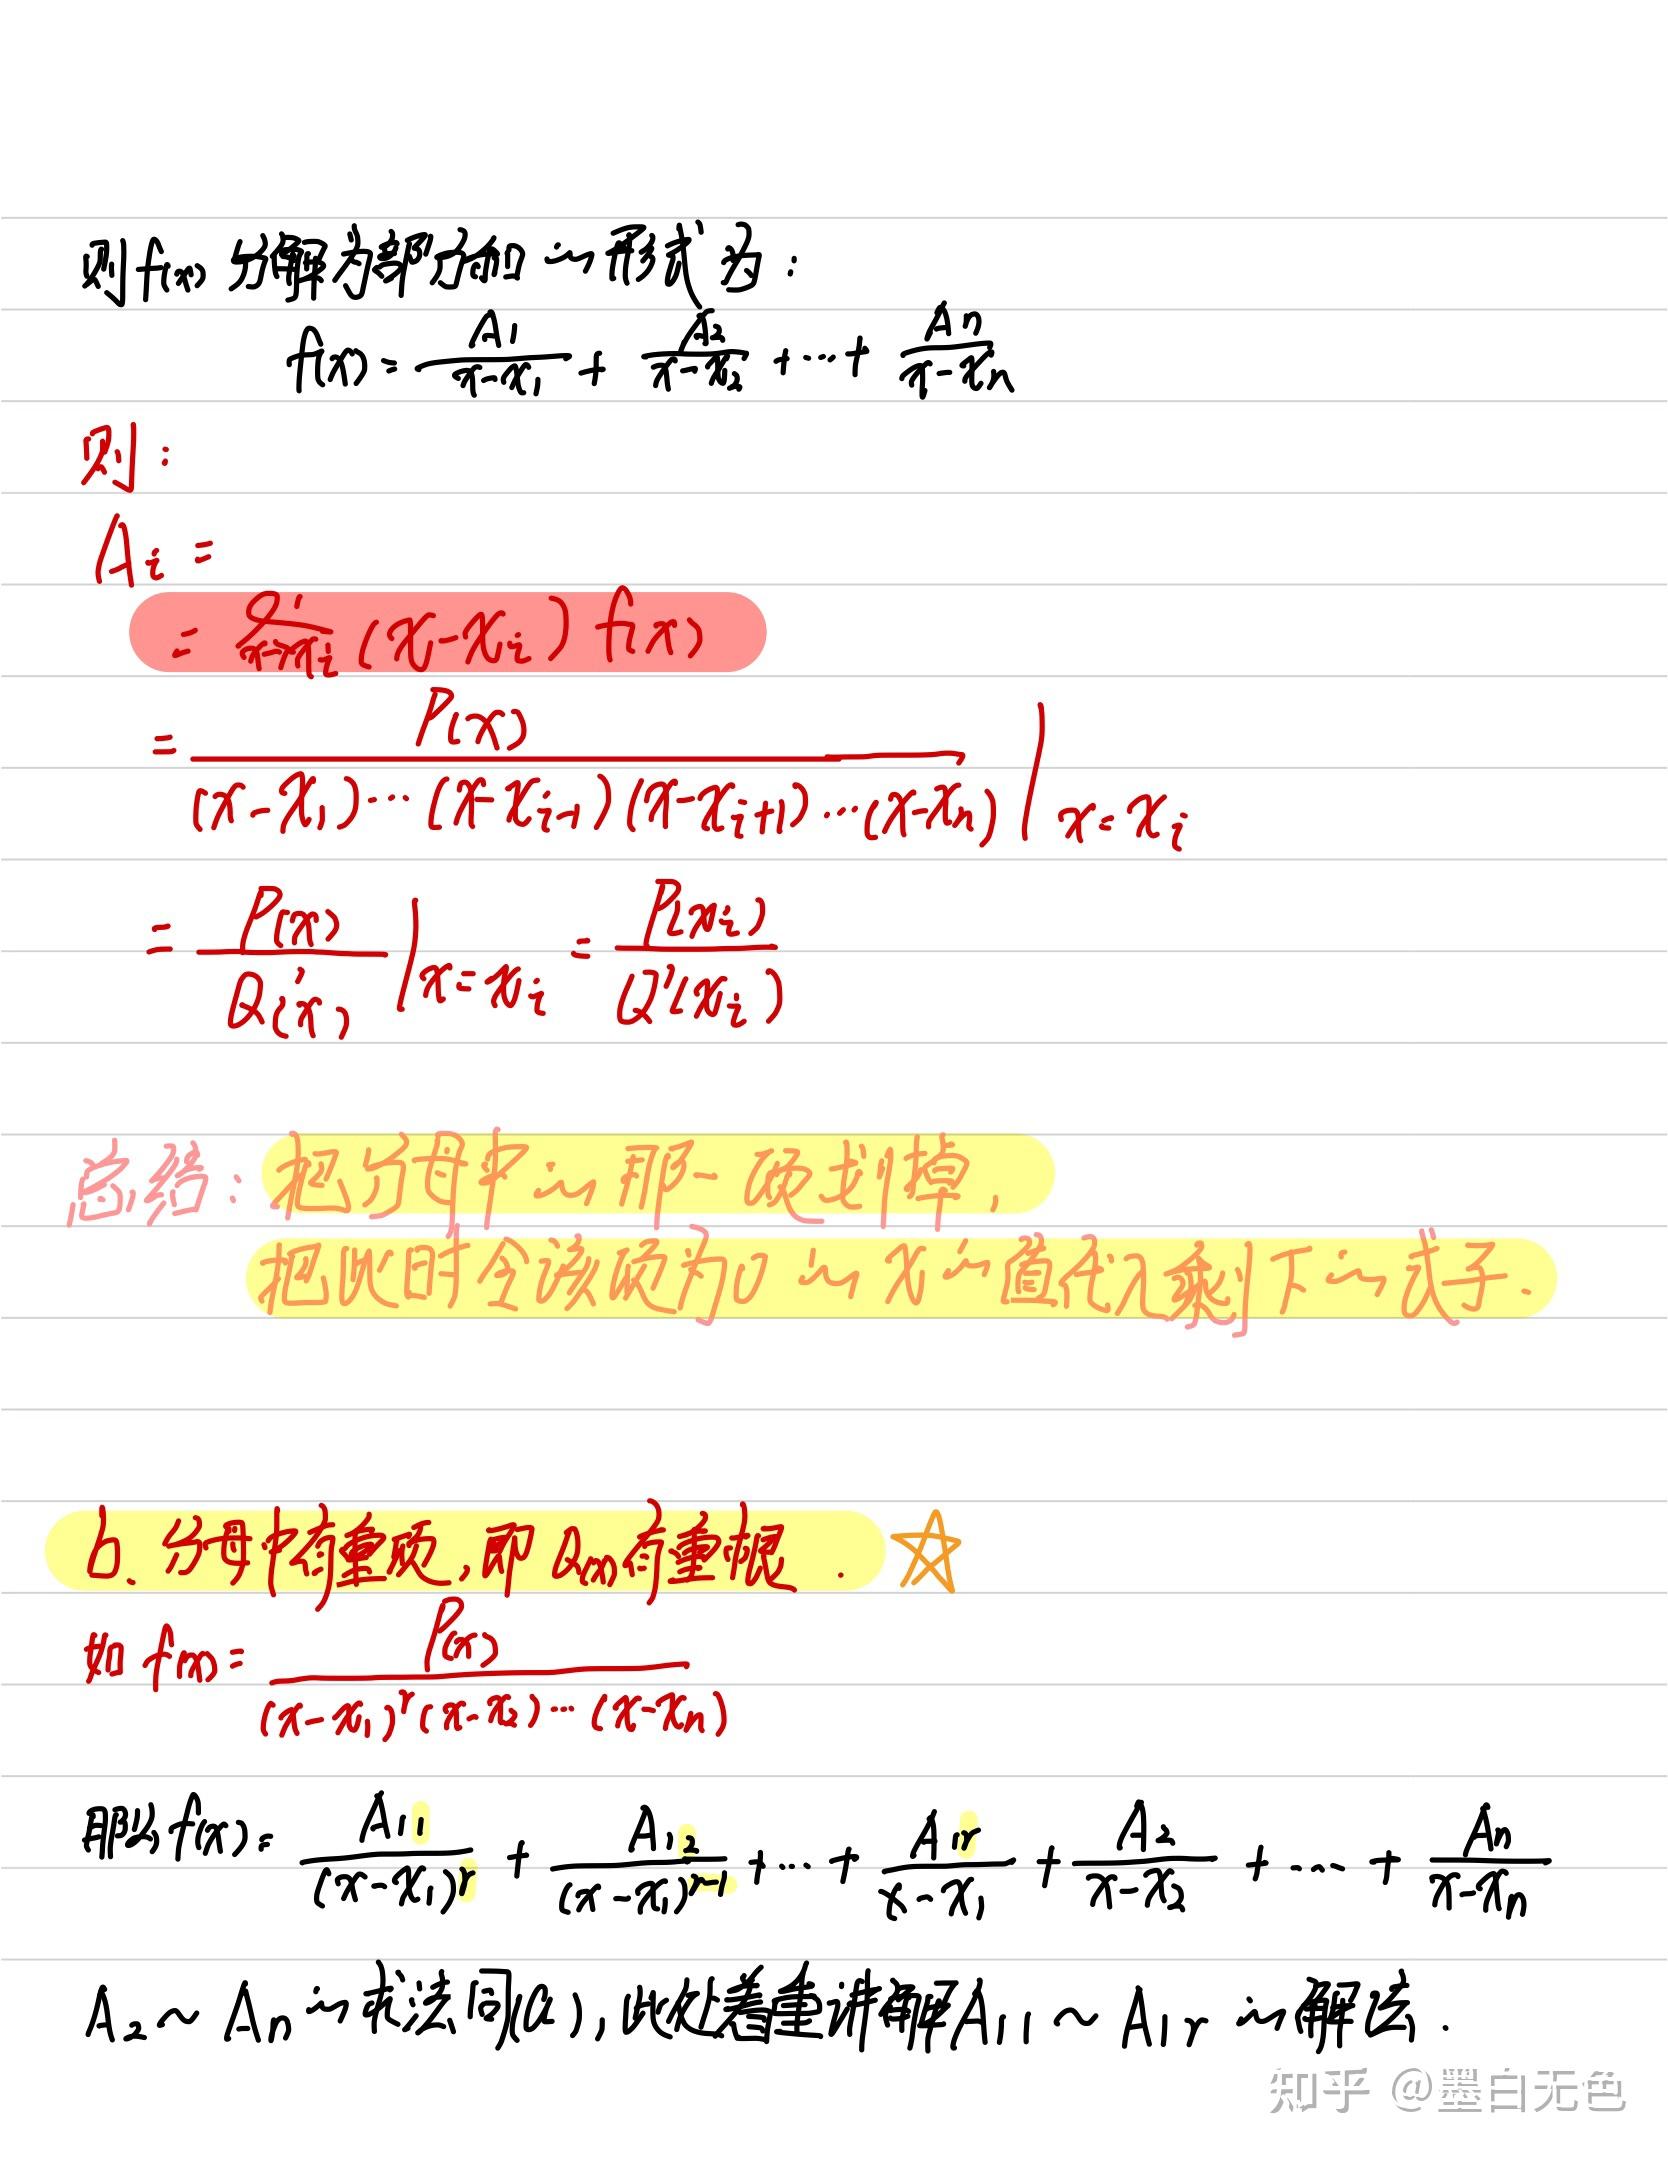 则f(x)分解为部分和的形式为:
f(x) = A₁/(x-x₁) + A₂/(x-x₂) + ... + Aₙ/(x-xₙ)
则:
Aᵢ =
= lim_{x→xᵢ} (x-xᵢ) f(x)
= P(x)/((x-x₁)...(x-xᵢ₋₁)(x-xᵢ₊₁)...(x-xₙ)) |_{x=xᵢ}
= P(x)/Q'(x) |_{x=xᵢ} = P(xᵢ)/Q'(xᵢ)
总结: 把分母中的那一项划掉,
把此时令该项为0的x的值代入剩下的式子.
b. 分母中有重项,即Q(x)有重根.
如 f(x) = P(x)/((x-x₁)ʳ(x-x₂)...(x-xₙ))
那么f(x) = A₁₁/(x-x₁)ʳ + A₁₂/(x-x₁)ʳ⁻¹ + ... + A₁ᵣ/(x-x₁) + A₂/(x-x₂) + .... + Aₙ/(x-xₙ)
A₂~Aₙ的求法同(a),此处着重讲解A₁₁~A₁ᵣ的解法.
知乎 @墨白无色